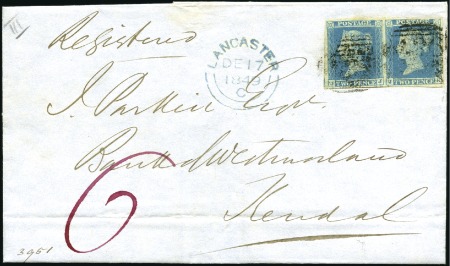 Registered
LANCASTER
DE 17
1849
C
POSTAGE POSTAGE
TWO PENCE TWO PENCE
J. Parkin Esqr.
Bank of Westmorland
6
Kendal
3951